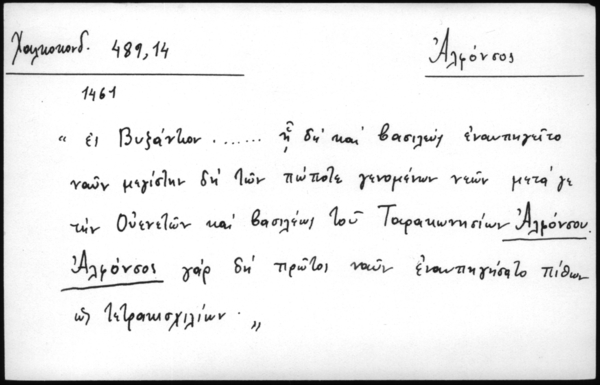 Χαλκοκονδ. 489,14
Ἀλφόνσος
1461
“ ἐς Βυζάντιον ....... ᾗ δὴ καὶ βασιλεὺς ἐναυπηγεῖτο
ναῦν μεγίστην δὴ τῶν πώποτε γενομένων νεῶν μετά γε
τὴν Οὐενετῶν καὶ βασιλέως τοῦ Ταρακωνησίων Ἀλφόνσου.
Ἀλφόνσος γὰρ δὴ πρῶτος ναῦν ἐναυπηγήσατο πίθων
ὡς τετρακισχιλίων. „